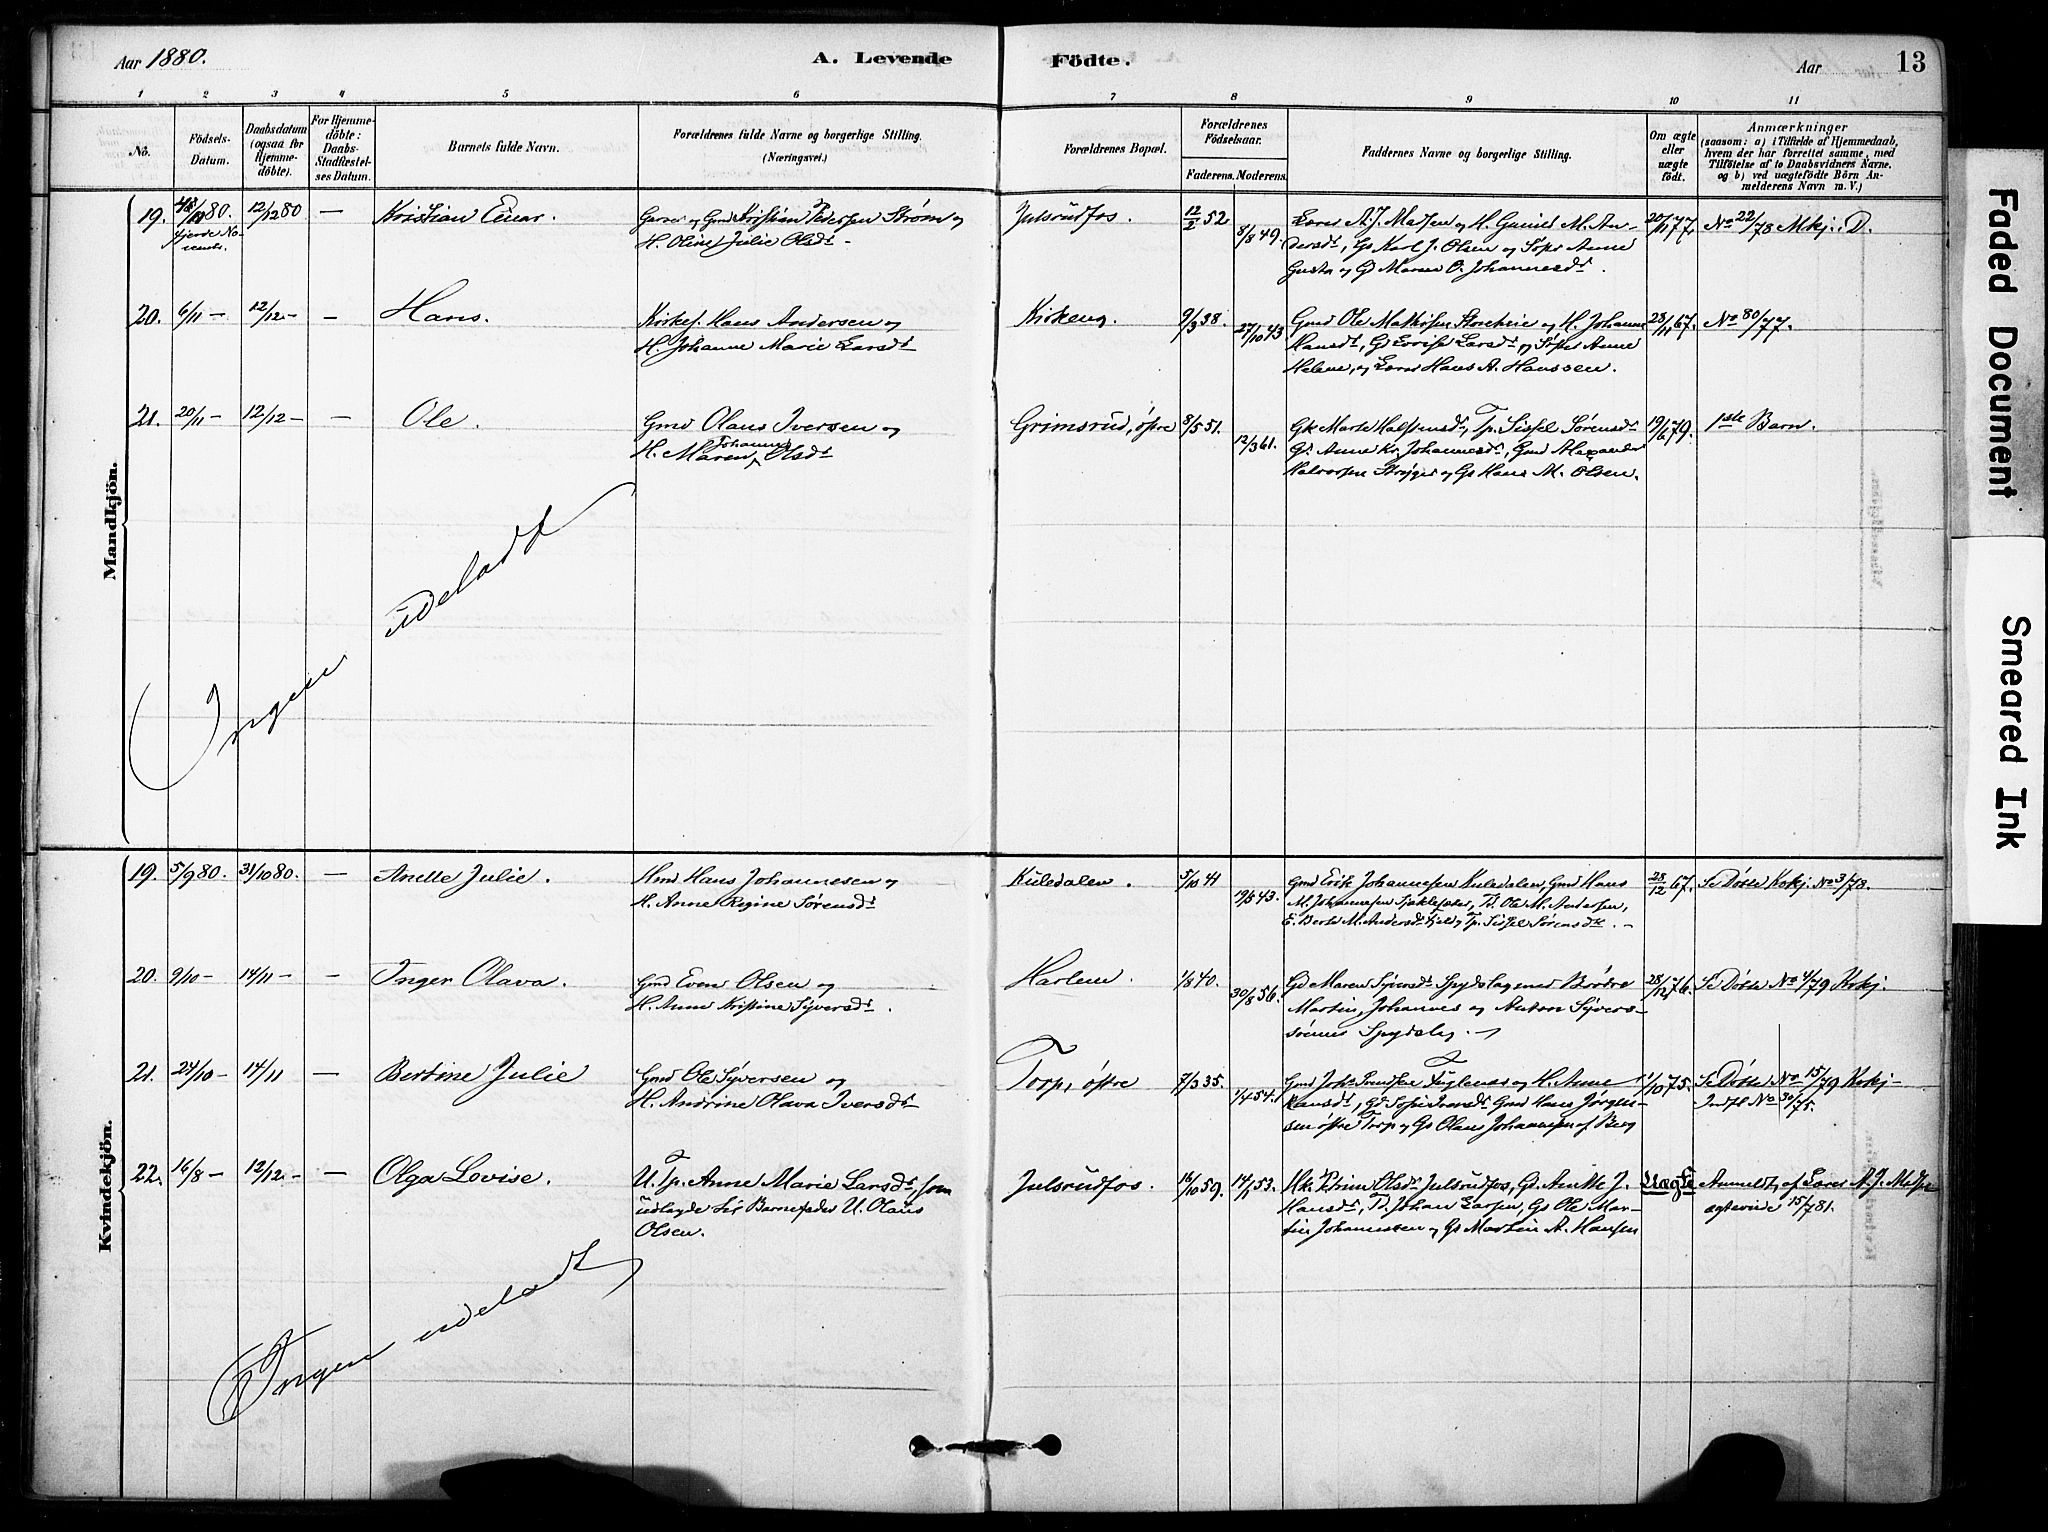 Aar 1880.
A. Levende Födte.
Aar 13
1 2 3 4 5 6 7 8 9 10 11
No.
Födsels-Datum.
Daabsdatum (ogsaa for Hjemmedöbte).
For Hjemmedöbte: Daabs-Stadfæstelses Datum.
Barnets fulde Navn.
Forældrenes fulde Navne og borgerlige Stilling.
(Næringsvei.)
Forældrenes Bopæl.
Forældrenes Födselsaar.
Faderens. Moderens.
Faddernes Navne og borgerlige Stilling.
Om ægte eller uægte födt.
Anmærkninger
(saasom: a) i Tilfælde af Hjemmedaab,
hvem der har forrettet samme, med
Tilföielse af to Daabsvidners Navne.
og b) ved uægtefödte Börn Anmelderens Navn m. V.)
Mandkjön.
19. 80. 12/12 80 — Kristian Einar. og Gmd Kristian Pedersen Strøm og
H. Oline Julie Olsdr -
Julsrudfos. 12/2 52 8/8 49. Lærer A. J. Madsen og H. Gunild M. Andersdr, Gs Karl J. Olsen og Søster Anne
Gusta og Gd Maren O. Johannesdr.
20/11 77. No 22/78 Mkj. D.
20. 6/11 — 12/12 — — Hans. Kirkes. Hans Andersen og
H. Johanne Marie Larsdr
Kirkeng. 9/3 38. 27/10 43 Gmd Ole Mathisen Storeheie og H. Johanne
Hansdr, Gd Lovise Larsdr og Søster Anne
Helene, og Lærer Hans A. Hanssen.
28/11 67. No 80/77.
21. 20/11 — 12/12 — — Ole. Gmd Olaus Iversen og
H. Maren Johanne Olsdr
Grimsrud, östre 8/5 51. 12/3 61. Gk Marte Halfvensdr, Tp. Sissel Sørensdr
Gd. Anne Kr. Johannesdr, Gmd Alexander
Halvorsen og Gs Hans M. Olsen.
19/6 79. 1ste Barn.
Ingen udeladt
Kvindekjön.
19. 5/9 80. 31/10 80. — Anette Julie. Hmd Hans Johannesen og
H. Anne Regine Sørensdr
Kuledalen. 5/10 41 19/5 43. Gmd Erik Johannesen Kuledalen, Gmd Hans
M. Johannesen, Td. Ole M. Andersen,
E. Berte M. Andersdr og Tp. Sissel Sørensdr. -
28/12 67. Se Døbte Kokj. No 3/78.
20. 9/10 — 14/11 — — Inger Olava. Gmd Even Olsen og
H. Anne Kristine Syversdr.
Harlem. 1/8 40. 30/8 56. Gd Maren Syversdr Spydslag med Brødre
Martin, Johannes og Anton Syverssønner Spydslag. -
28/12 76. Se Døbte No 4/79 Kokj.
21. 24/10 — 14/11 — — Bertine Julie Gmd Ole Syversen og
H. Andrine Olava Iversdr
Torp, östre 7/3 35. 1/4 54. Gmd Johs Fuglenæs og H. Anne
Hansdr, Gd Sofie Iversdr Gmd Hans Jørgensen östre Torp og Gs Olaus Johannesen af Berg
1/10 75. Se Døbte No 15/79 Kokj-
Indfl No 30/75.
22. 16/8 — 12/12 — — Olga Lovise. U. Tp. Anne Marie Larsdr, som
udlagde til Barnefader U. Olaus
Olsen.
Julsrudfos. 16/10 59. 14/1 53. Hk. Petrine Olsdr Julsrudfos, Gd. Anette J.
Hansdr, Td. Johan Larsen, Gs Ole Martin Johannesen og Gs Martin A. Hansen
Uægte Anmeldt af Lærer A. J. Madsen
15/7 81.
Ingen udeladt
Faded Document
Smeared Ink